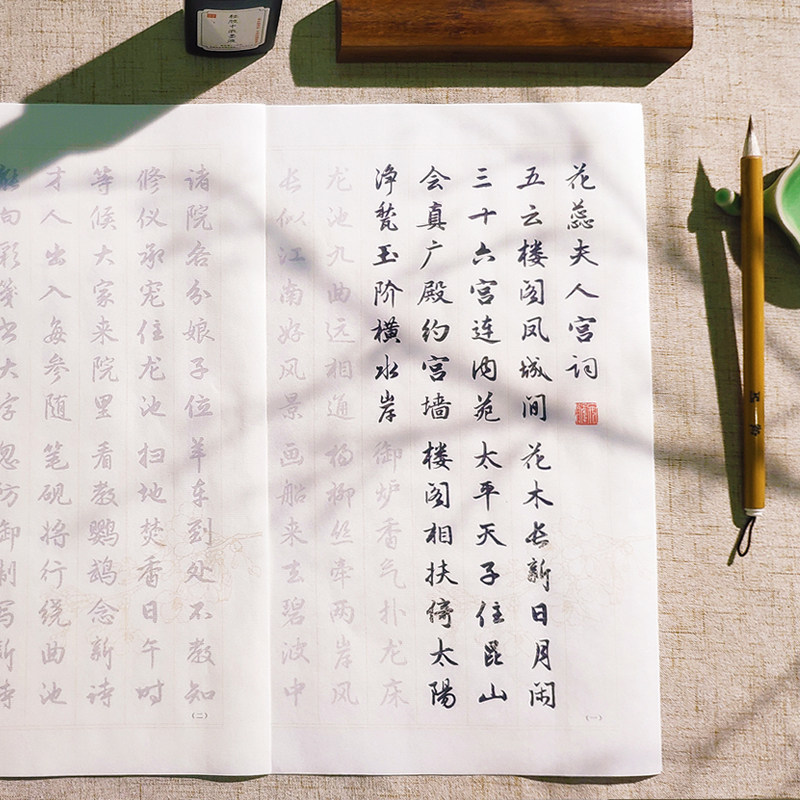 花蕊夫人宫词
五云楼阁凤城间 花木长新日月闲
三十六宫连内苑 太平天子住昆山
会真广殿约宫墙 楼阁相扶倚太阳
净甃玉阶横水岸 御炉香气扑龙床
龙池九曲远相通 杨柳丝牵两岸风
长似江南好风景 画船来去碧波中
(一)
诸院各分娘子位 羊车到处不教知
修仪承宠住龙池 扫地焚香日午时
等候大家来院里 看教鹦鹉念新诗
才人出入每参随 笔砚将行绕曲池
能向彩笺书大字 忽防御制写新诗
(二)